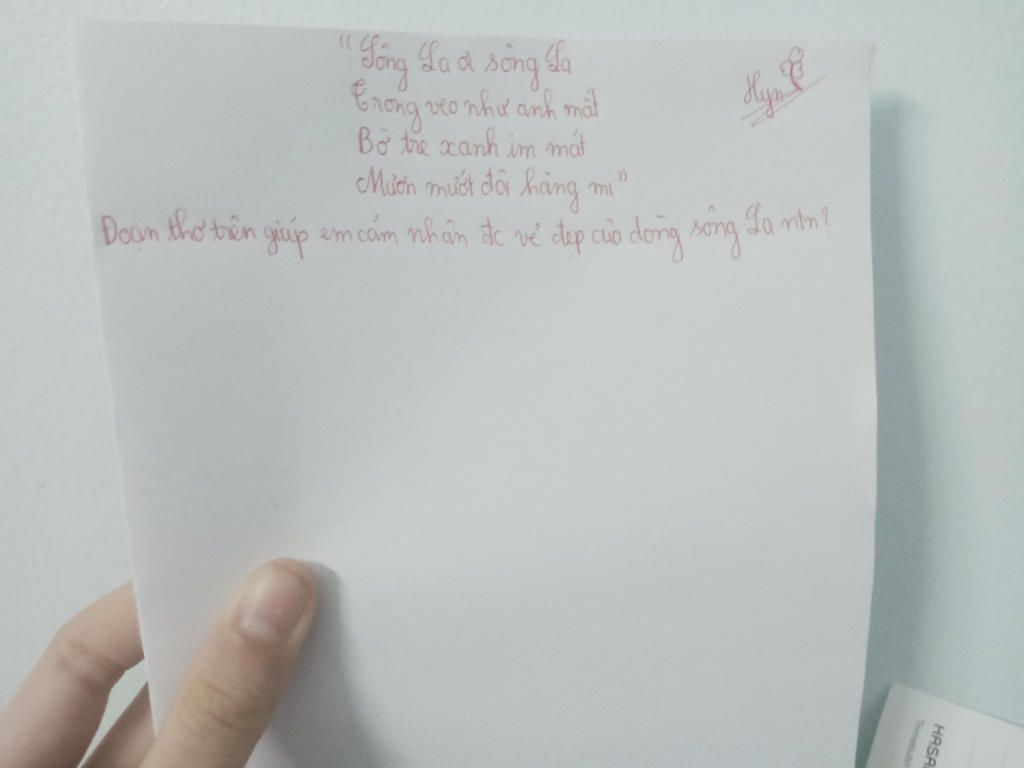 "Sông La ơi sông La
Trong veo như ánh mắt
Bờ tre xanh im mát
Mươn mướt đôi hàng mi"
Đoạn thơ trên giúp em cảm nhận đc vẻ đẹp của dòng sông La ntn?
Hyn
HASA